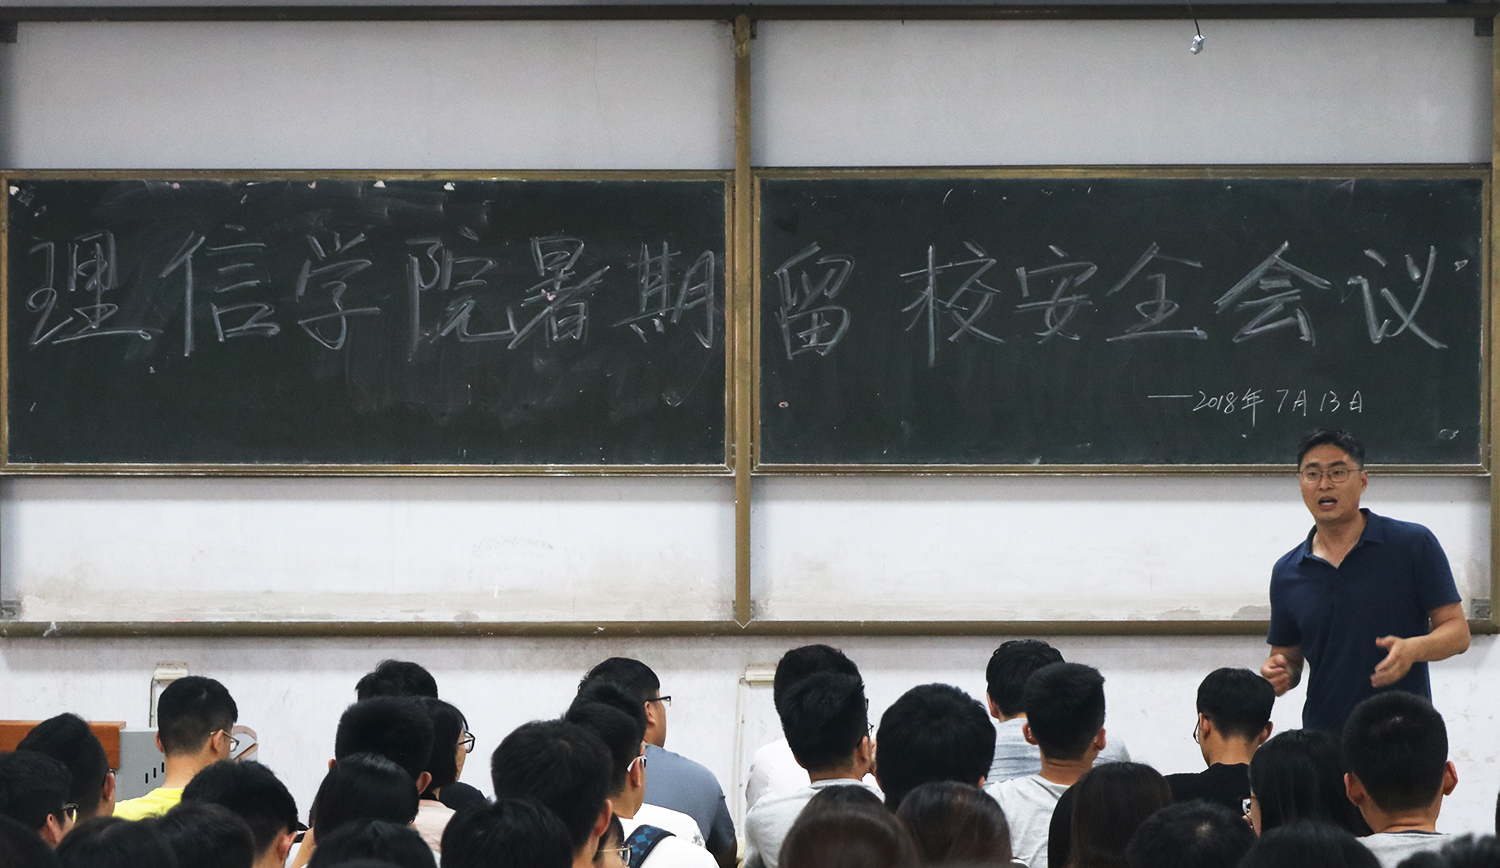 理信学院暑期留校安全会议
——2018年7月13日